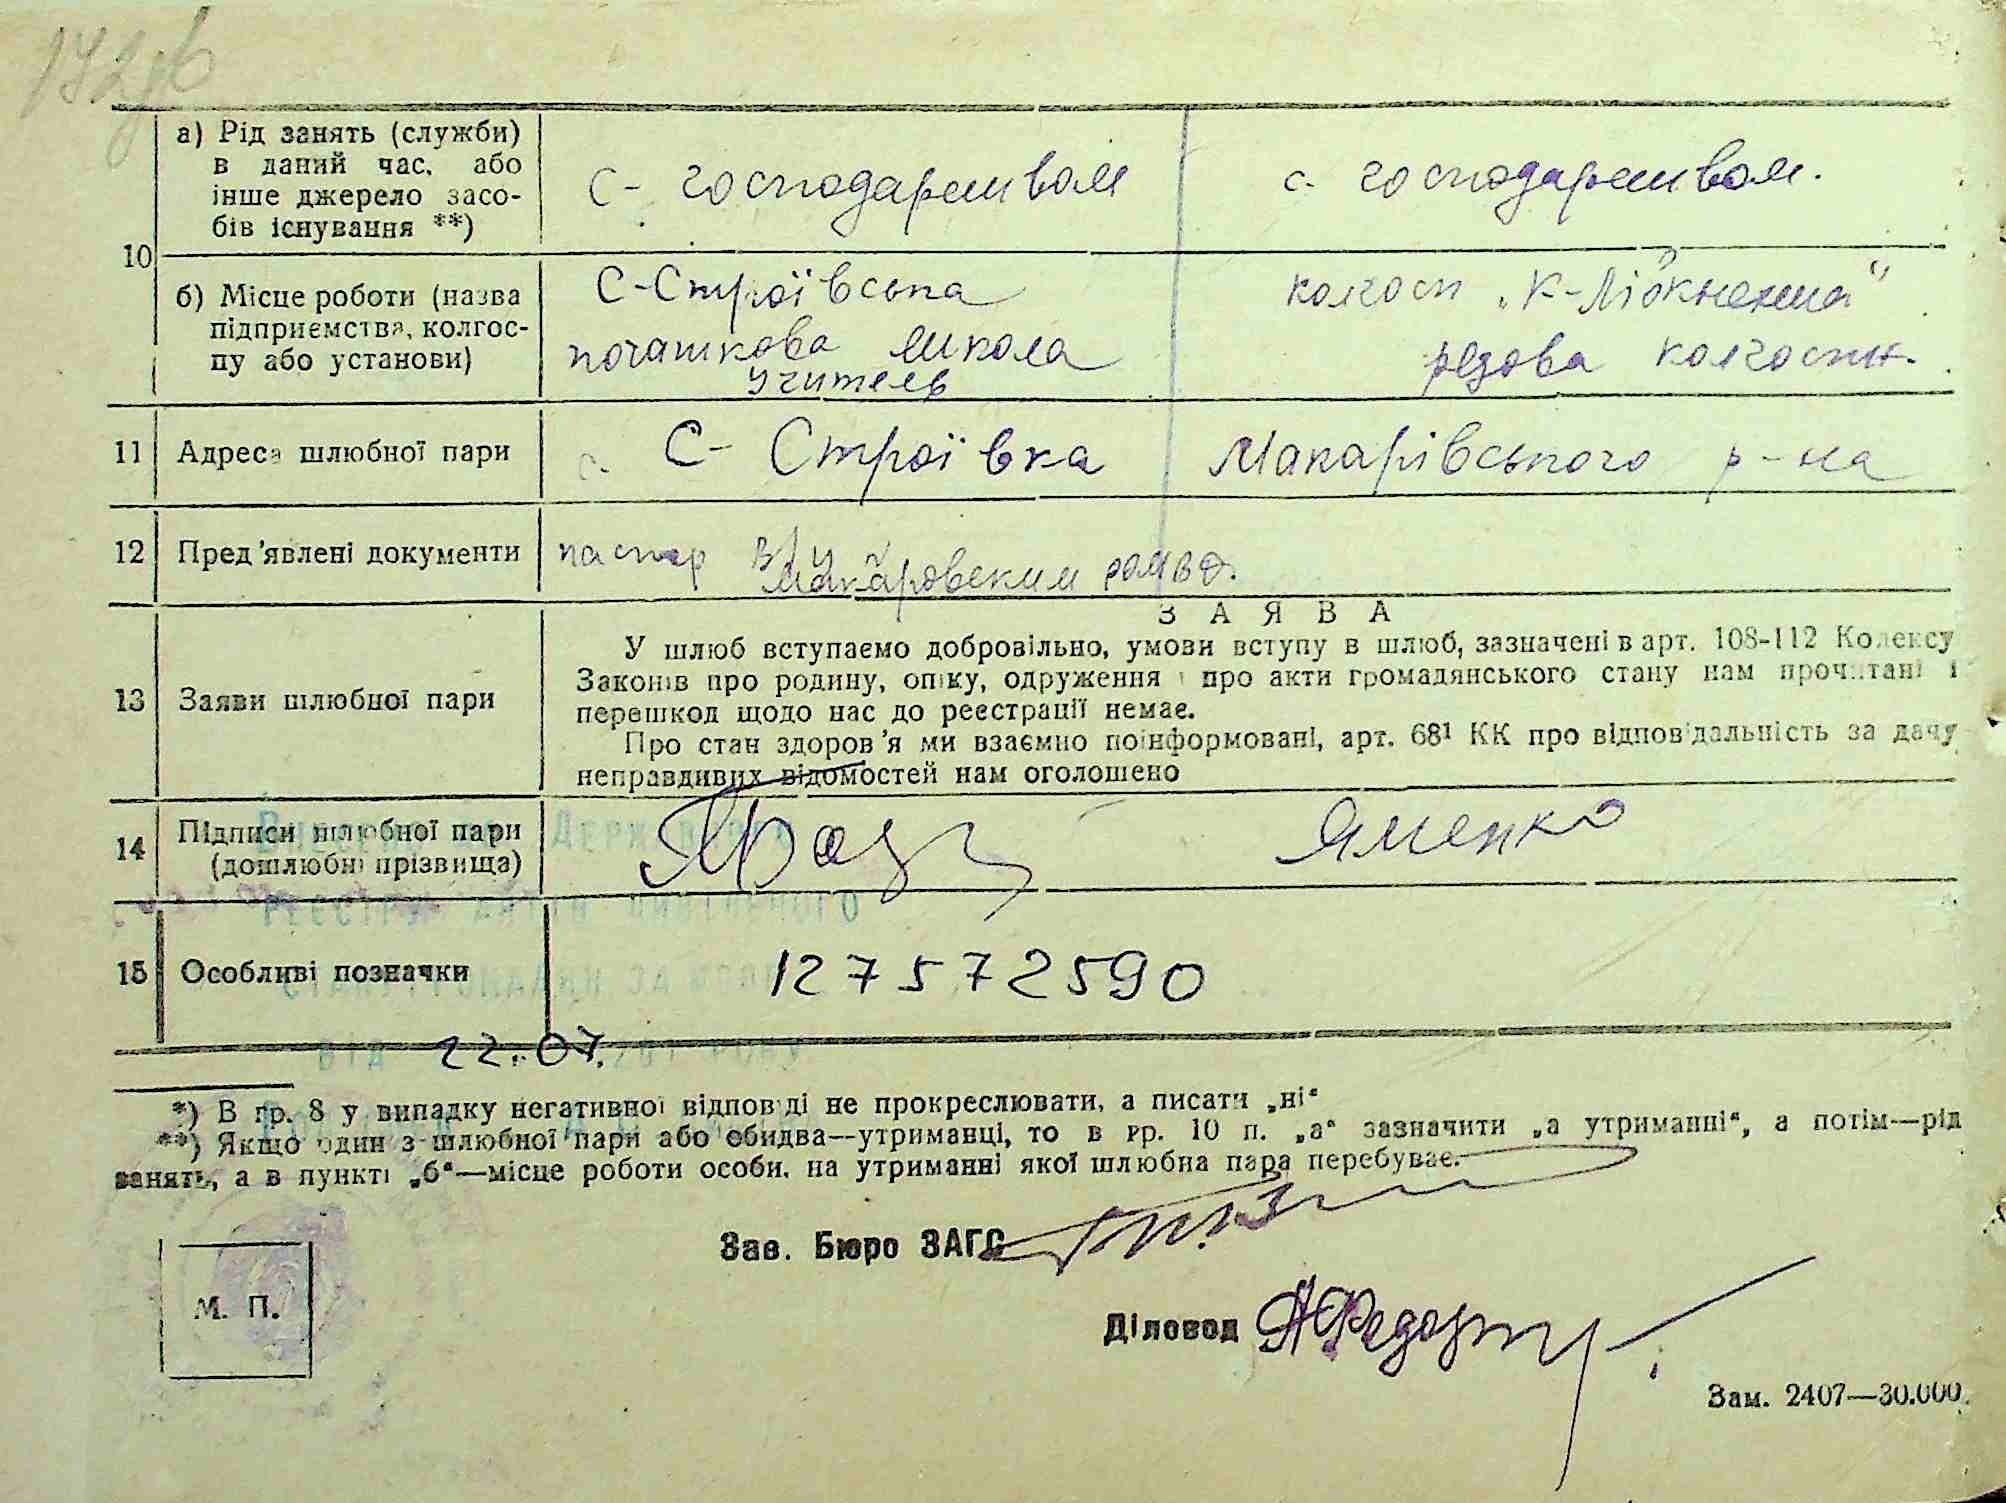 172 дв
а) Рід занять (служби)
в даний час, або
інше джерело засо-
бів існування **)
с- господарством
с. господарством.
10
б) Місце роботи (назва
підприємства, колгос-
пу або установи)
С-Строївська
початкова школа
учитель
колгосп „К-Лібкнехта"
рядова колгоспн.
11 Адреса шлюбної пари
С- Строївка Макарівського р-на
12 Пред'явлені документи
паспор Макаровским
З А Я В А
13 Заяви шлюбної пари
У шлюб вступаємо добровільно, умови вступу в шлюб, зазначені в арт. 108-112 Кодексу
Законів про родину, опіку, одруження і про акти громадянського стану нам прочитані і
перешкод щодо нас до реєстрації немає.
Про стан здоров'я ми взаємно поінформовані, арт. 68¹ КК про відповідальність за дачу
неправдивих відомостей нам оголошено
14 Підписи шлюбної пари
(дошлюбні прізвища)
Яменко
Державного
реєстру актів цивільного
15 Особливі позначки
127572590
від 22.07. року
*) В гр. 8 у випадку негативної відповіді не прокреслювати, а писати „ні"
**) Якщо один з шлюбної пари або обидва—утриманці, то в гр. 10 п. „а" зазначити „а утриманні", а потім—рід
занять, а в пункті „б"—місце роботи особи, на утриманні якої шлюбна пара перебуває.
Зав. Бюро ЗАГС
М. П.
Діловод
Зам. 2407—30.000.